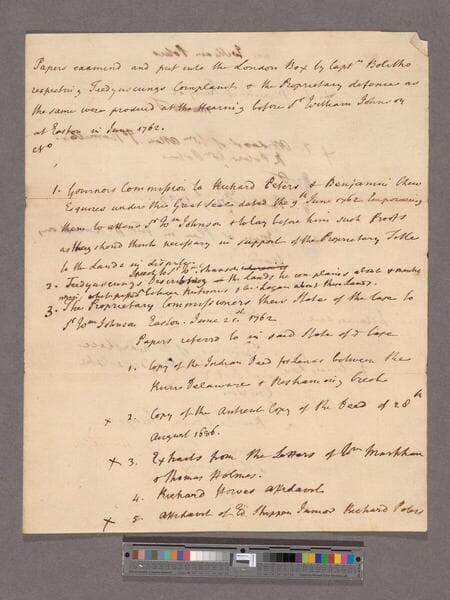 Papers examined and put into the London Box by Captn Bolitho
respecting Teedyuscungs Complaint & the Proprietary defence as
the same were produced at the Hearing before Sr William Johnson
at Easton in June 1762.
No
1. Governors Commission to Richard Peters & Benjamin Chew
Esquires under the Great Seale dated the 9th June 1762 Empowering
them to attend Sr Wm Johnson & to lay before him such Proofs
as they should think necessary in support of the Proprietary Title
to the Lands in dispute
Speech to Sr Wm Johnson
2. Teedyuscungs Describing the Lands he complains about &
what passed between him & about those Lands.
3. The Proprietary Commissioners their State of the Case to
Sr Wm Johnson Easton. June 21st 1762
Papers referred to in said State of the Case
1. Copy of the Indian Deed for Lands between the
River Delaware & Neshaminy Creek
x 2. Copy of the Antient Copy of the Deed of 28th
August 1686.
x 3. Extracts from the Letters of Wm Markham
& Thomas Holmes.
4. Richard Hoves Affidavit
x 5. Affidavit of Ed Shippen Junior Richard Peters